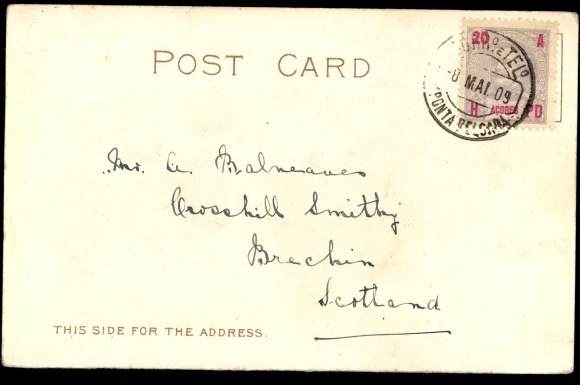 POST CARD
20 A
H AÇORES PD
MAI. 09
PONTA DELGADA
Mr. A. Balneaves
Crosshill Smithy
Brechin
Scotland
THIS SIDE FOR THE ADDRESS.